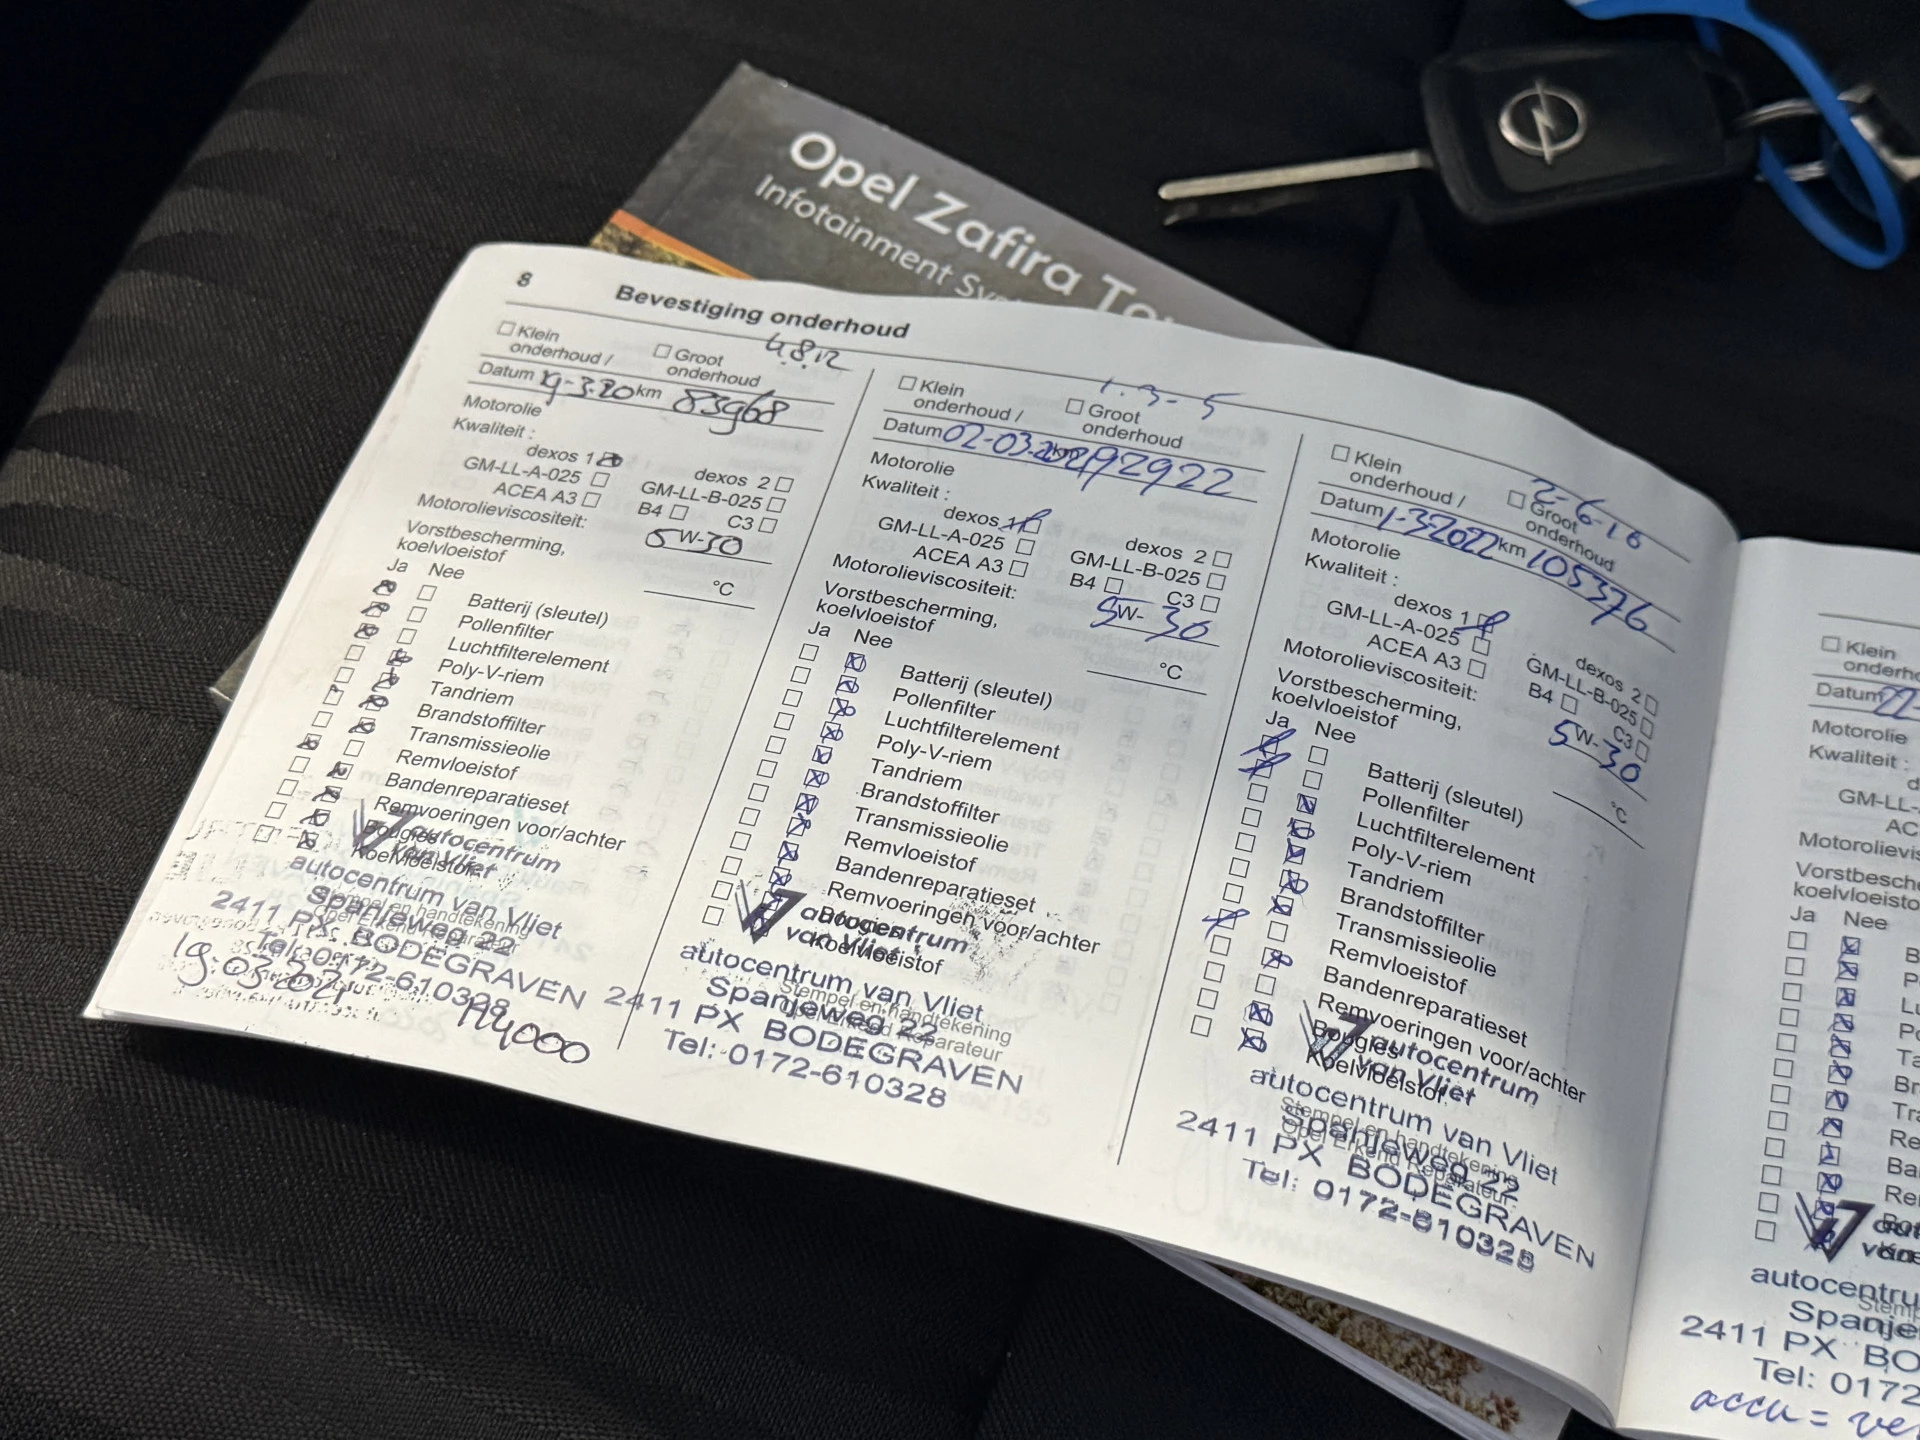 Opel Zafira
Infotainment
8
Bevestiging onderhoud
4.8.12
Klein
onderhoud /
Groot
onderhoud
Datum 19-3-20 km 83968
Motorolie
Kwaliteit :
dexos 1
dexos 2
GM-LL-A-025
GM-LL-B-025
ACEA A3
B4
C3
Motorolieviscositeit:
5W-30
Vorstbescherming,
koelvloeistof
°C
Ja Nee
Batterij (sleutel)
Pollenfilter
Luchtfilterelement
Poly-V-riem
Tandriem
Brandstoffilter
Transmissieolie
Remvloeistof
Bandenreparatieset
Remvoeringen voor/achter
Bougies
Koelvloeistof
autocentrum
van Vliet
autocentrum van Vliet
Stempel en handtekening
Spanjeweg 22
2411 PX BODEGRAVEN
Tel: 0172-610328
19.03.2021
114000
1-3-5
Klein
onderhoud /
Groot
onderhoud
Datum 02-03-2021 km 92922
Motorolie
Kwaliteit :
dexos 1
dexos 2
GM-LL-A-025
GM-LL-B-025
ACEA A3
B4
C3
Motorolieviscositeit:
5W-30
Vorstbescherming,
koelvloeistof
°C
Ja Nee
Batterij (sleutel)
Pollenfilter
Luchtfilterelement
Poly-V-riem
Tandriem
Brandstoffilter
Transmissieolie
Remvloeistof
Bandenreparatieset
Remvoeringen voor/achter
Bougies
Koelvloeistof
autocentrum
van Vliet
autocentrum van Vliet
Stempel en handtekening
Spanjeweg 22
Opel Erkend Reparateur
2411 PX BODEGRAVEN
Tel: 0172-610328
2-6-16
Klein
onderhoud /
Groot
onderhoud
Datum 1-3-2022 km 105376
Motorolie
Kwaliteit :
dexos 1
dexos 2
GM-LL-A-025
GM-LL-B-025
ACEA A3
B4
C3
Motorolieviscositeit:
5W-30
Vorstbescherming,
koelvloeistof
°C
Ja Nee
Batterij (sleutel)
Pollenfilter
Luchtfilterelement
Poly-V-riem
Tandriem
Brandstoffilter
Transmissieolie
Remvloeistof
Bandenreparatieset
Remvoeringen voor/achter
Bougies
Koelvloeistof
autocentrum
van Vliet
autocentrum van Vliet
Stempel en handtekening
Spanjeweg 22
Opel Erkend Reparateur
2411 PX BODEGRAVEN
Tel: 0172-610328
Klein
Datum 22-
Motorolie
Kwaliteit :
GM-LL-
Ja Nee
2411 PX
Tel: 0172
accu =